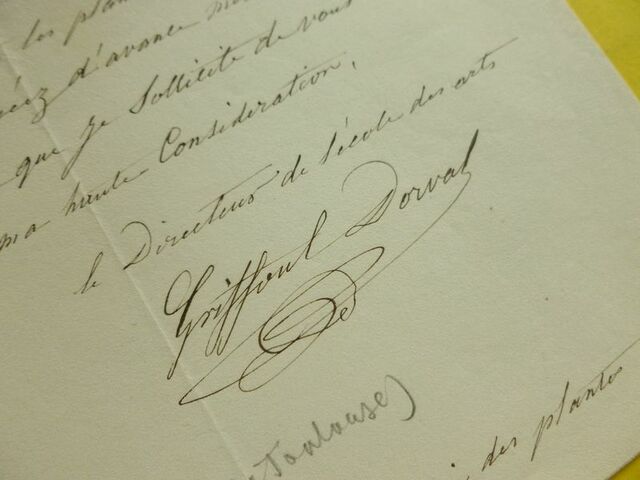 les plan
d'avance mon
que je Sollicite de vous
ma haute Considération,
le Directeur de l'école des arts
Griffoul Dorval
Toulouse)
des plantes